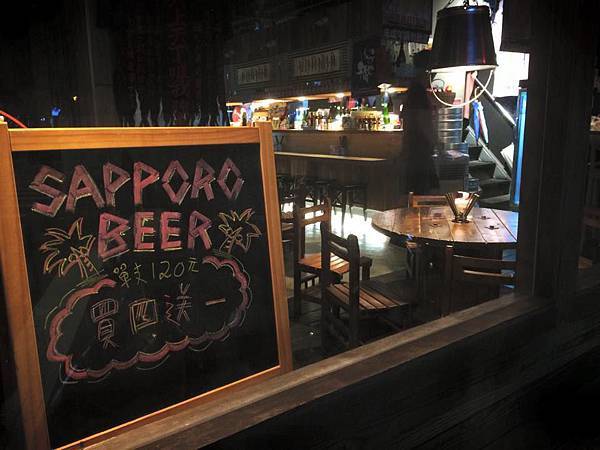 SAPPORO
BEER
單支120元
買四送一